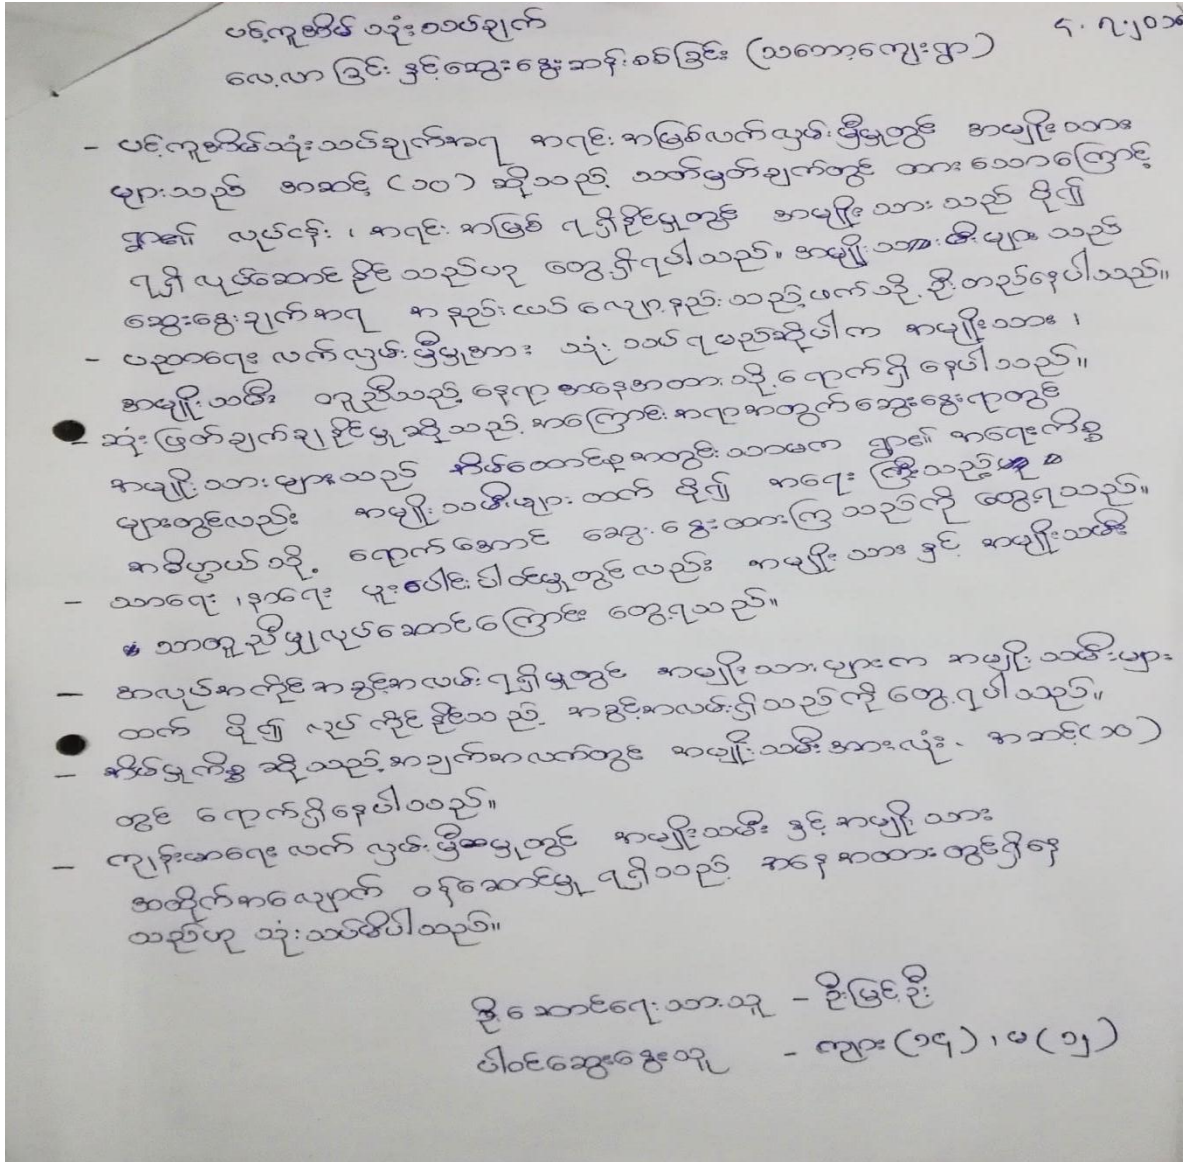 ပင့်ကူအိမ် သုံးသပ်ချက် ၄.၇.၂၀၁
လေ့လာခြင်း နှင့်ဆွေးနွေးဆန်းစစ်ခြင်း (သဘော့ကျေးရွာ)
- ပင့်ကူအိမ်သုံးသပ်ချက်အရ အရင်းအမြစ်လက်လှမ်းမှီမှုတွင် အမျိုးသား
များသည် အဆင့် (၁၀) ဆိုသည့် သတ်မှတ်ချက်တွင် ထားသောကြောင့်
ရွာ၏ လုပ်ငန်း၊ အရင်းအမြစ် ရရှိနိုင်မှုတွင် အမျိုးသားသည် ပို၍
ရရှိ လုပ်ဆောင်နိုင်သည်ဟု တွေ့ရှိရပါသည်။ အမျိုးသမီးများသည်
ဆွေးနွေးချက်အရ အနည်းငယ် လျော့နည်းသည့်ဖက်သို့ ဦးတည်နေပါသည်။
- ပညာရေး လက်လှမ်းမှီမှုအား သုံးသပ်ရမည်ဆိုပါက အမျိုးသား၊
အမျိုးသမီး တူညီသည့် နေရာအနေအထားသို့ ရောက်ရှိနေပါသည်။
- ဆုံးဖြတ်ချက်ချနိုင်မှု ဆိုသည့် အကြောင်းအရာအတွက်ဆွေးနွေးရာတွင်
အမျိုးသားများသည် အိမ်ထောင်စုအတွင်းသာမက ရွာ၏ အရေးကိစ္စ
များတွင်လည်း အမျိုးသမီးများထက် ပို၍ အရေးကြီးသည်ဟု
အဓိပ္ပာယ်သို့ ရောက်အောင် ဆွေးနွေးထားကြသည်ကို တွေ့ရသည်။
- သာရေး၊နာရေး ပူးပေါင်းပါဝင်မှုတွင်လည်း အမျိုးသား နှင့် အမျိုးသမီး
သာတူညီမျှလုပ်ဆောင်ကြောင်း တွေ့ရသည်။
- အလုပ်အကိုင်အခွင့်အလမ်းရရှိမှုတွင် အမျိုးသားများက အမျိုးသမီးများ
ထက် ပို၍ လုပ်ကိုင်နိုင်သည့် အခွင့်အလမ်းရှိသည်ကို တွေ့ရပါသည်။
- အိမ်မှုကိစ္စ ဆိုသည့်အချက်အလက်တွင် အမျိုးသမီးအားလုံး အဆင့်(၁၀)
တွင် ရောက်ရှိနေပါသည်။
- ကျန်းမာရေးလက်လှမ်းမှီမှုတွင် အမျိုးသမီး နှင့် အမျိုးသား
အထိုက်အလျောက် ဝန်ဆောင်မှု ရရှိသည့် အနေအထားတွင်ရှိနေ
သည်ဟု သုံးသပ်မိပါသည်။
ဦးဆောင်ရေးသားသူ - ဦးမြင့်ဦး
ပါဝင်ဆွေးနွေးသူ - ကျား(၁၄)၊ မ(၁၂)